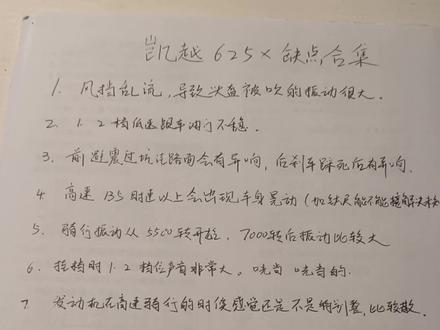 凯越 625X 缺点合集
1. 风挡乱流,导致头盔被吹的振动很大.
2. 1.2档低速跟车油门不稳.
3. 前避震过坑洼路面会有异响,后刹车踩死后有异响.
4 高速 135时速以上会出现车身晃动(加
5. 骑行振动从5500转开始, 7000转后振动比较大
6. 挂档时1.2档位声音非常大。咣当 咣当的.
7 发动机在高速骑行的时候感觉还是不是特别整,比较散.